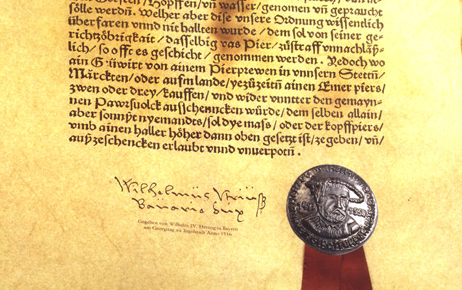 Gersten/Hopffen/vñ wasser/genomen vñ gepraucht
sölle werdñ. Welher aber dise vnsere Ordnung wissentlich
überfaren vnnd nit hallten wurde/dem sol von seiner ge-
richtzöbrigkait/dasselbig vas Pier/zůstraff vnnachläß-
lich/so offt es geschicht/genommen werden. Yedoch wo
ain Gůwirt von ainem Pierprewen in vnnsern Stettñ/
Märckten/oder aufm lande/yezůzeitñ ainen Emer piers/
zwen oder drey/kauffen/vnd wider vnntter den gemayn-
nen Pawrsuolck ausschencken würde/dem selben allain/
aber sonnst nyemandts/sol dye mass/oder der kopffpiers/
vmb ainen haller höher dann oben gesetzt ist/zegeben/vñ
außzeschencken erlaubt vnnd vnuerpotñ.
Gegeben von Wilhelm IV. Herzog in Bayern
am Georgitag zu Ingolstadt Anno 1516